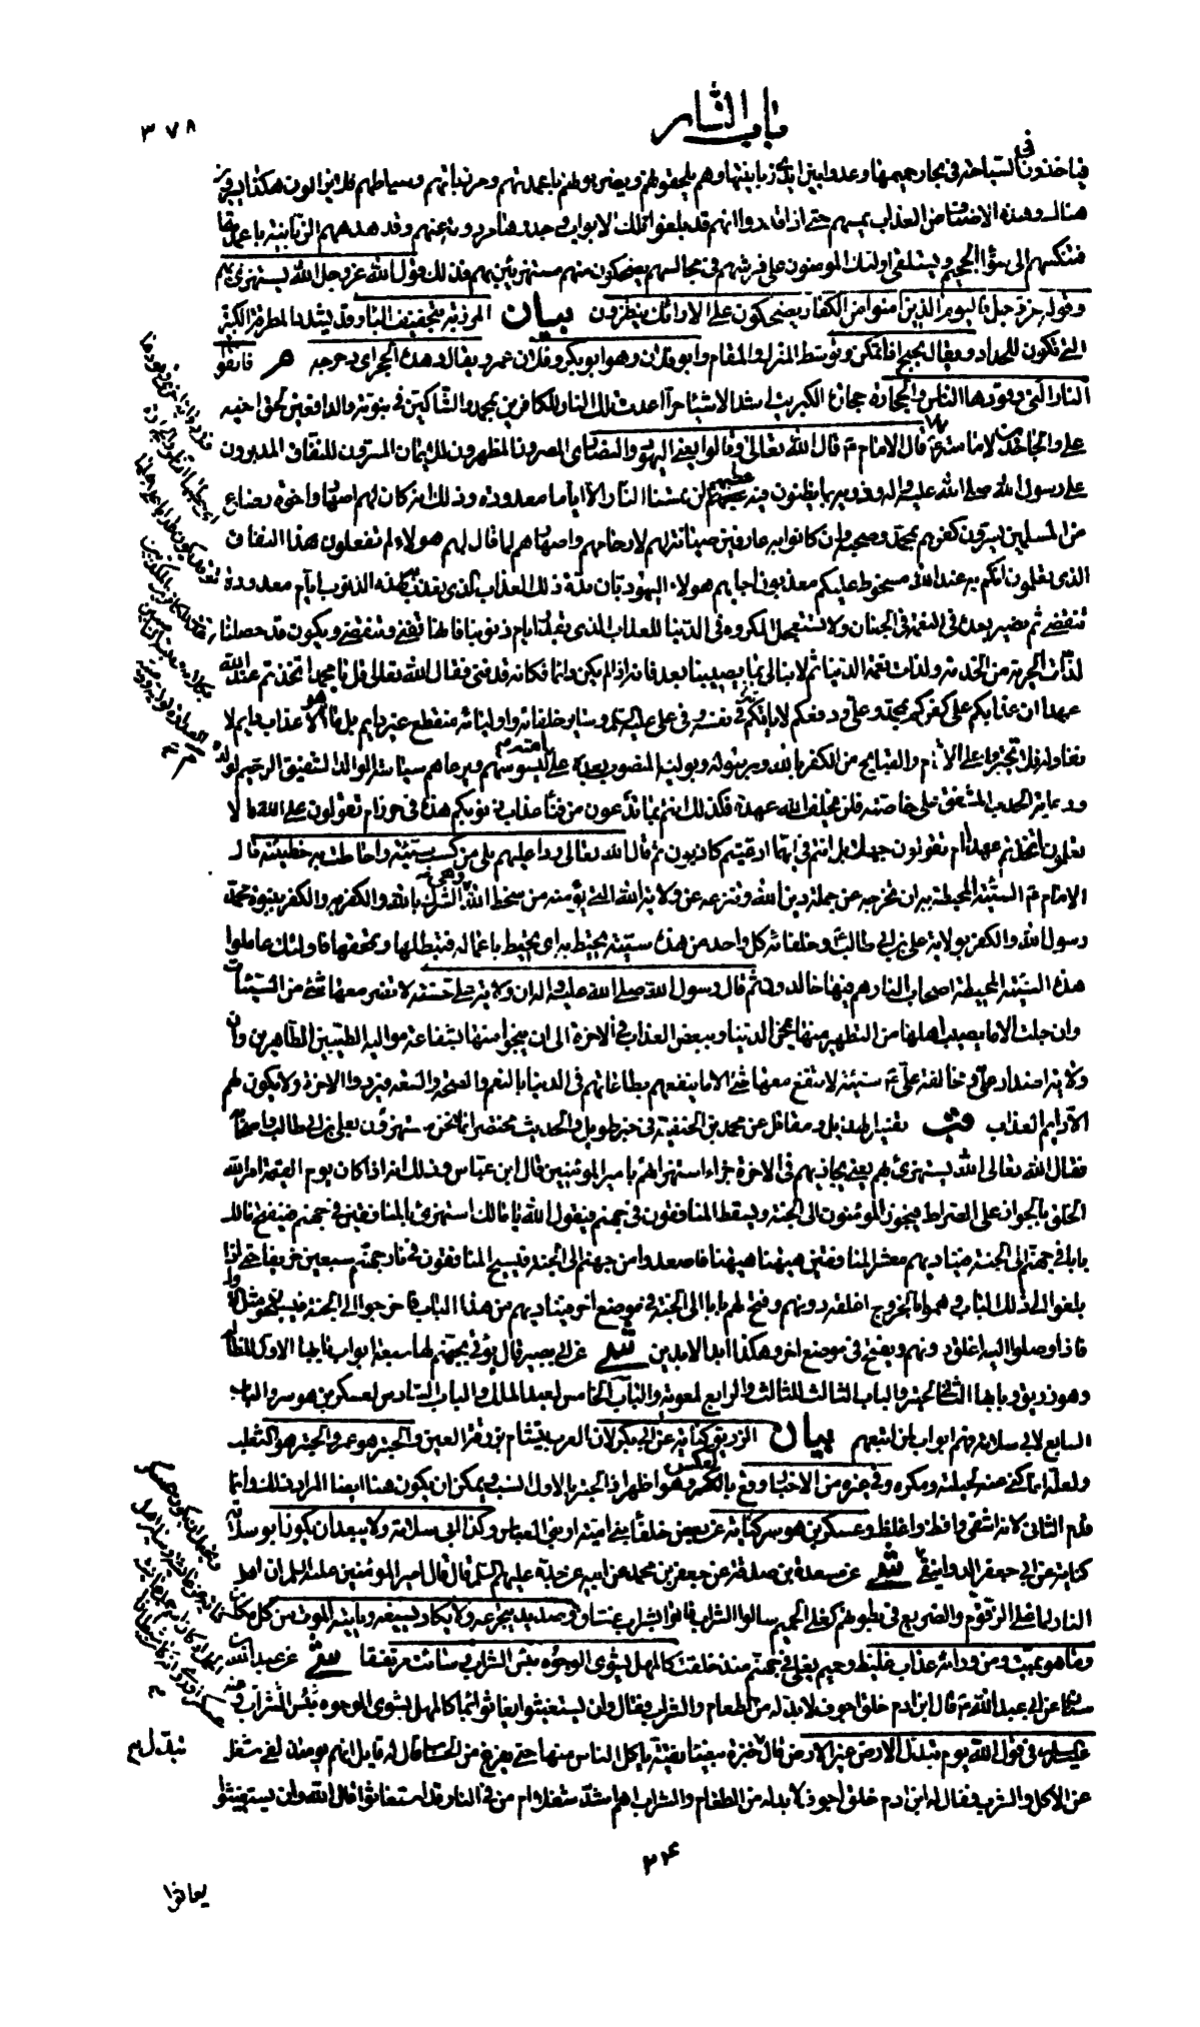 باب النار
٣٧٨
فياخذون في السباحة في بحار حميمها وعدوا بين ايدي زبانيتها وهم يلحقونهم ويضربونهم باعمدتهم ومرزباتهم وسياطهم فلا يزالون هكذا يسيرون
هناك وهذه الاصناف من العذاب يمسهم حتى اذا قدروا انهم قد بلغوا تلك الابواب وجدوها مردومة عنهم وتدهدههم الزبانية باعمدتها
فتنكسهم الى سواء الجحيم ويستلقي اولئك المؤمنون على فرشهم في مجالسهم يضحكون منهم مستهزئين بهم فذلك قول الله عز وجل الله يستهزئ بهم
وقوله عز وجل فاليوم الذين امنوا من الكفار يضحكون على الارائك ينظرون بيان المرزبة بتخفيف الباء وقد يشدد المطرقة الكبيرة
التي تكون للحداد ويقال بحبح اذا تمكن وتوسط المنزل والمقام وابو فلان وهو ابو بكر وفلان عمر ويقال دهدى الحجر اي دحرجه م فاتقوا
النار التي وقودها الناس والحجارة حجارة الكبريت اشد الاشياء حرا اعدت تلك النار للكافرين بمحمد والشاكين في نبوته والدافعين لحق اخيه
علي والجاحدين لامامته م قال الامام ع قال الله تعالى وقالوا يعني اليهود والنصارى المصرون المظهرون للايمان المسرون للنفاق المدبرون
على رسول الله صلى الله عليه واله وذويه بما يظنون فيه عطبهم لن تمسنا النار الا اياما معدودة وذلك انه كان لهم اصهار واخوة رضاع
من المسلمين يسترون كفرهم بمحمد وصحبه وان كانوا به عارفين صيانة لهم لارحامهم واصهارهم لما قال لهم هؤلاء لم تفعلون هذا النفاق
الذي تعلمون انكم به عند الله مسخوط عليكم معذبون اجابهم هؤلاء اليهود بان مدة ذلك العذاب الذي نعذب به لهذه الذنوب ايام معدودة
تنقضي ثم نصير بعد في النعمة في الجنان ولا نستعجل المكروه في الدنيا للعذاب الذي بقدر ايام ذنوبنا فانها تفنى وتنقضي ويكون قد حصلنا
لذات الحرية من الخدمة ولذات نعمة الدنيا ثم لا نبالي بما يصيبنا بعد فانه اذا لم يكن دائما فكانه قد فنى فقال الله تعالى قل يا محمد اتخذتم عند الله
عهدا ان عذابكم على كفركم بمحمد ودفعكم لاياته في نفسه وفي علي وساير خلفائه واوليائه منقطع غير دايم بل ما هو الا عذاب دايم لا
نفاد له فلا تجترؤا على الاثام والقبايح من الكفر بالله وبرسوله وبوليه المنصوب بعده على امته ليسوسهم ويرعاهم سياسة الوالد الشفيق الرحيم لولده
ورعاية الحدب المشفق على خاصته فلن يخلف الله عهده فكذلك انتم بما تدعون من فناء عذاب ذنوبكم هذه في حرز ام تقولون على الله ما لا
تعلمون اتخذتم عهدا ام تقولون جهلا بل انتم في ايهما ادعيتم كاذبون ثم قال الله تعالى ردا عليهم بلى من كسب سيئة واحاطت به خطيئته قال
الامام ع السيئة المحيطة به ان تخرجه عن جملة دين الله وتنزعه عن ولاية الله التي تؤمنه من سخط الله وهي الشرك بالله والكفر به والكفر بنبوة محمد
رسول الله والكفر بولاية علي بن ابي طالب وخلفائه كل واحد من هذه سيئة يحيط به اي يحيط باعماله فتبطلها وتمحقها فاولئك عاملوا
هذه السيئة المحيطة اصحاب النار هم فيها خالدون ثم قال رسول الله صلى الله عليه واله ان ولاية علي حسنة لا تضر معها شئ من السيئات
وان جلت الا ما يصيب اهلها من التطهير منها بمحن الدنيا وببعض العذاب في الاخرة الى ان ينجوا منها بشفاعة مواليه الطيبين الطاهرين وان
ولاية اضداد علي ومخالفة علي ع سيئة لا ينفع معها شئ الا ما ينفعهم بطاعاتهم في الدنيا بالنعم والصحة والسعة فيردوا الاخرة ولا يكون لهم
الا دايم العذاب قب تفسير الهذيل ومقاتل عن محمد بن الحنفية في خبر طويل والحديث مختصر انما نحن مستهزؤن بعلي بن ابي طالب واصحابه
فقال الله تعالى الله يستهزئ بهم يعني يجازيهم في الاخرة جزاء استهزائهم بامير المؤمنين قال ابن عباس وذلك انه اذا كان يوم القيمة امر الله
الخلق بالجواز على الصراط فيجوز المؤمنون الى الجنة ويسقط المنافقون في جهنم فيقول الله يا مالك استهزئ بالمنافقين في جهنم فيفتح مالك
بابا في جهنم الى الجنة فيناديهم معشر المنافقين هيهنا هيهنا فاصعدوا من جهنم الى الجنة فيسبح المنافقون في نار جهنم سبعين خريفا حتى اذا
بلغوا الى ذلك الباب وهموا بالخروج اغلقه دونهم وفتح لهم بابا الى الجنة في موضع اخر فيناديهم من هذا الباب فاخرجوا الى الجنة فيسبحون مثل الاول
فاذا وصلوا اليه اغلق دونهم ويفتح في موضع اخر وهكذا ابد الابدين شى عن ابي بصير قال يؤتى بجهنم لها سبعة ابواب بابها الاول للظالم
وهو زريق وبابها الثاني لحبتر والباب الثالث للثالث والرابع لمعوية والباب الخامس لعبد الملك والباب السادس لعسكر بن هوسر والباب
السابع لابي سلامة فهم ابواب لمن اتبعهم بيان الزريق كناية عن ابي بكر لان العرب يتشأم بزرقة العين والحبتر هو عمر والحبتر هو الثعلب
ولعله انما كني عنه لحيلته ومكره وفي غيره من الاخبار وقع بالعكس وهو اظهر اذ الحبتر بالاول انسب ويمكن ان يكون هنا ايضا المراد ذلك وانما
قدم الثاني لانه اشقى وافظ واغلظ وعسكر بن هوسر كناية عن بعض خلفاء بني امية او بني العباس وكذا ابي سلامة ولا يبعد ان يكون ابو سلامة
كناية عن ابي جعفر الدوانيقي شى عن مسعدة بن صدقة عن جعفر بن محمد عن ابيه عن جده عليهم السلم قال قال امير المؤمنين عليه السلم ان اهل
النار لما غلى الزقوم والضريع في بطونهم كغلي الحميم سالوا الشراب فاتوا بشراب غساق وصديد يتجرعه ولا يكاد يسيغه وياتيه الموت من كل مكان
وما هو بميت ومن ورائه عذاب غليظ وحميم يغلي في جهنم منذ خلقت كالمهل يشوي الوجوه بئس الشراب وسائت مرتفقا شى عن عبد الله بن
سنان عن ابي عبد الله ع قال ابن ادم خلق اجوف لا بد له من الطعام والشراب فقال وان يستغيثوا يغاثوا بماء كالمهل يشوي الوجوه بئس الشراب وعنه
عليه السلم في قول الله يوم تبدل الارض غير الارض قال تبدل خبزة بيضاء نقية ياكل الناس منها حتى يفرغ من الحساب قال له قايل انهم يومئذ لفي شغل
عن الاكل والشرب فقال له ابن ادم خلق اجوف لا بد له من الطعام والشراب اهم اشد شغلا ام من في النار قد استغاثوا قال الله وان يستغيثوا
٣٤
يغاثوا